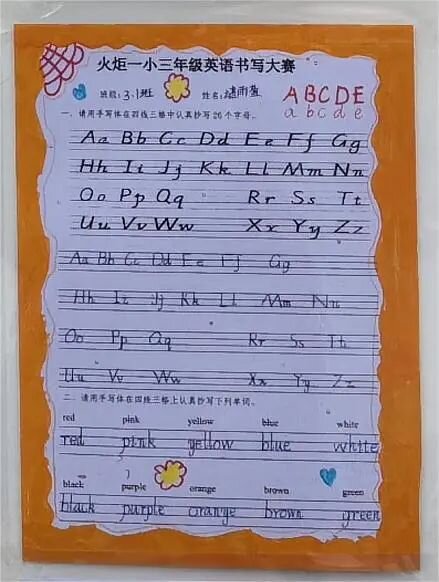 火炬一小三年级英语书写大赛
班级:3.1班 姓名:
ABCDE
a b c d e
一、请用手写体在四线三格中认真抄写26个字母。
Aa Bb Cc Dd Ee Ff Gg
Hh Ii Jj Kk Ll Mm Nn
Oo Pp Qq Rr Ss Tt
Uu Vv Ww Xx Yy Zz
Aa Bb Cc Dd Ee Ff Gg
Hh Ii Jj Kk Ll Mm Nn
Oo Pp Qq Rr Ss Tt
Uu Vv Ww Xx Yy Zz
二、请用手写体在四线三格上认真抄写下列单词。
red pink yellow blue white
red pink yellow blue white
black purple orange brown green
black purple orange brown green